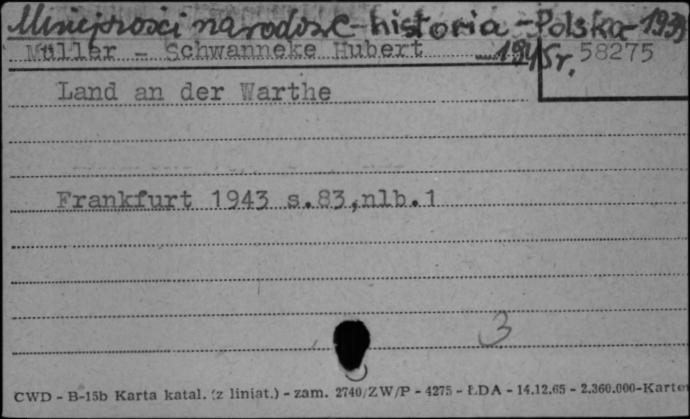 Mniejszości narodowe - historia - Polska - 1939
Müller - Schwanneke Hubert 1945r. 58275
Land an der Warthe
Frankfurt 1943 s.83,nlb.1
3
CWD - B-15b Karta katal. (z liniat.) - zam. 2740/ZW/P - 4275 - ŁDA - 14.12.65 - 2.360.000-Karton